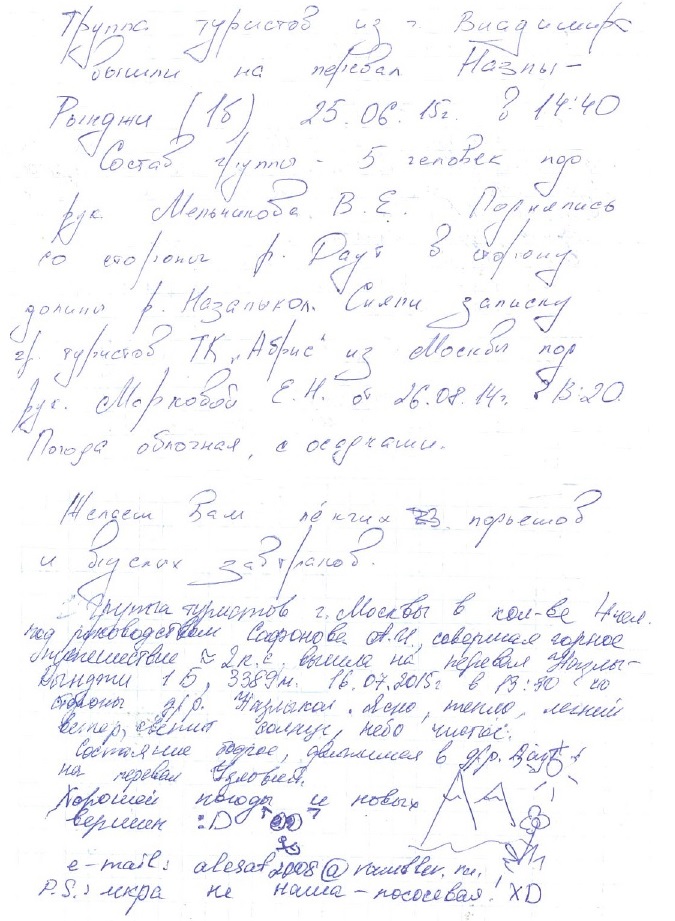 Группа туристов из г. Владимира
вышли на перевал Назлы-
Рынджи (1б) 25.06.15г. в 14:40
Состав группы - 5 человек под
рук. Мельникова В.Е. Поднялись
со стороны р. Даут в сторону
долины р. Назалыкол. Сняли записку
гр. туристов ТК „Абрис“ из Москвы под
рук. Марковой Е.Н. от 26.08.14г. 13:20.
Погода облачная, с осадками.
Желаем Вам лёгких подъемов
и вкусных завтраков.
Группа туристов г. Москвы в кол-ве 4 чел.
под руководством Сафонова А.И., совершая горное
путешествие ≈ 2к.с., вышла на перевал Назлы-
Рынджи 1Б, 3389м. 16.07.2015г в 13:50 со
стороны д.р. Назлыкол. Ясно, тепло, легкий
ветер, светит солнце, небо чистое.
Состояние бодрое, движемся в д.р. Даут
на перевал
Хорошей погоды и новых
вершин :D
e-mail:
P.S.: икра не наша - лососевая! XD